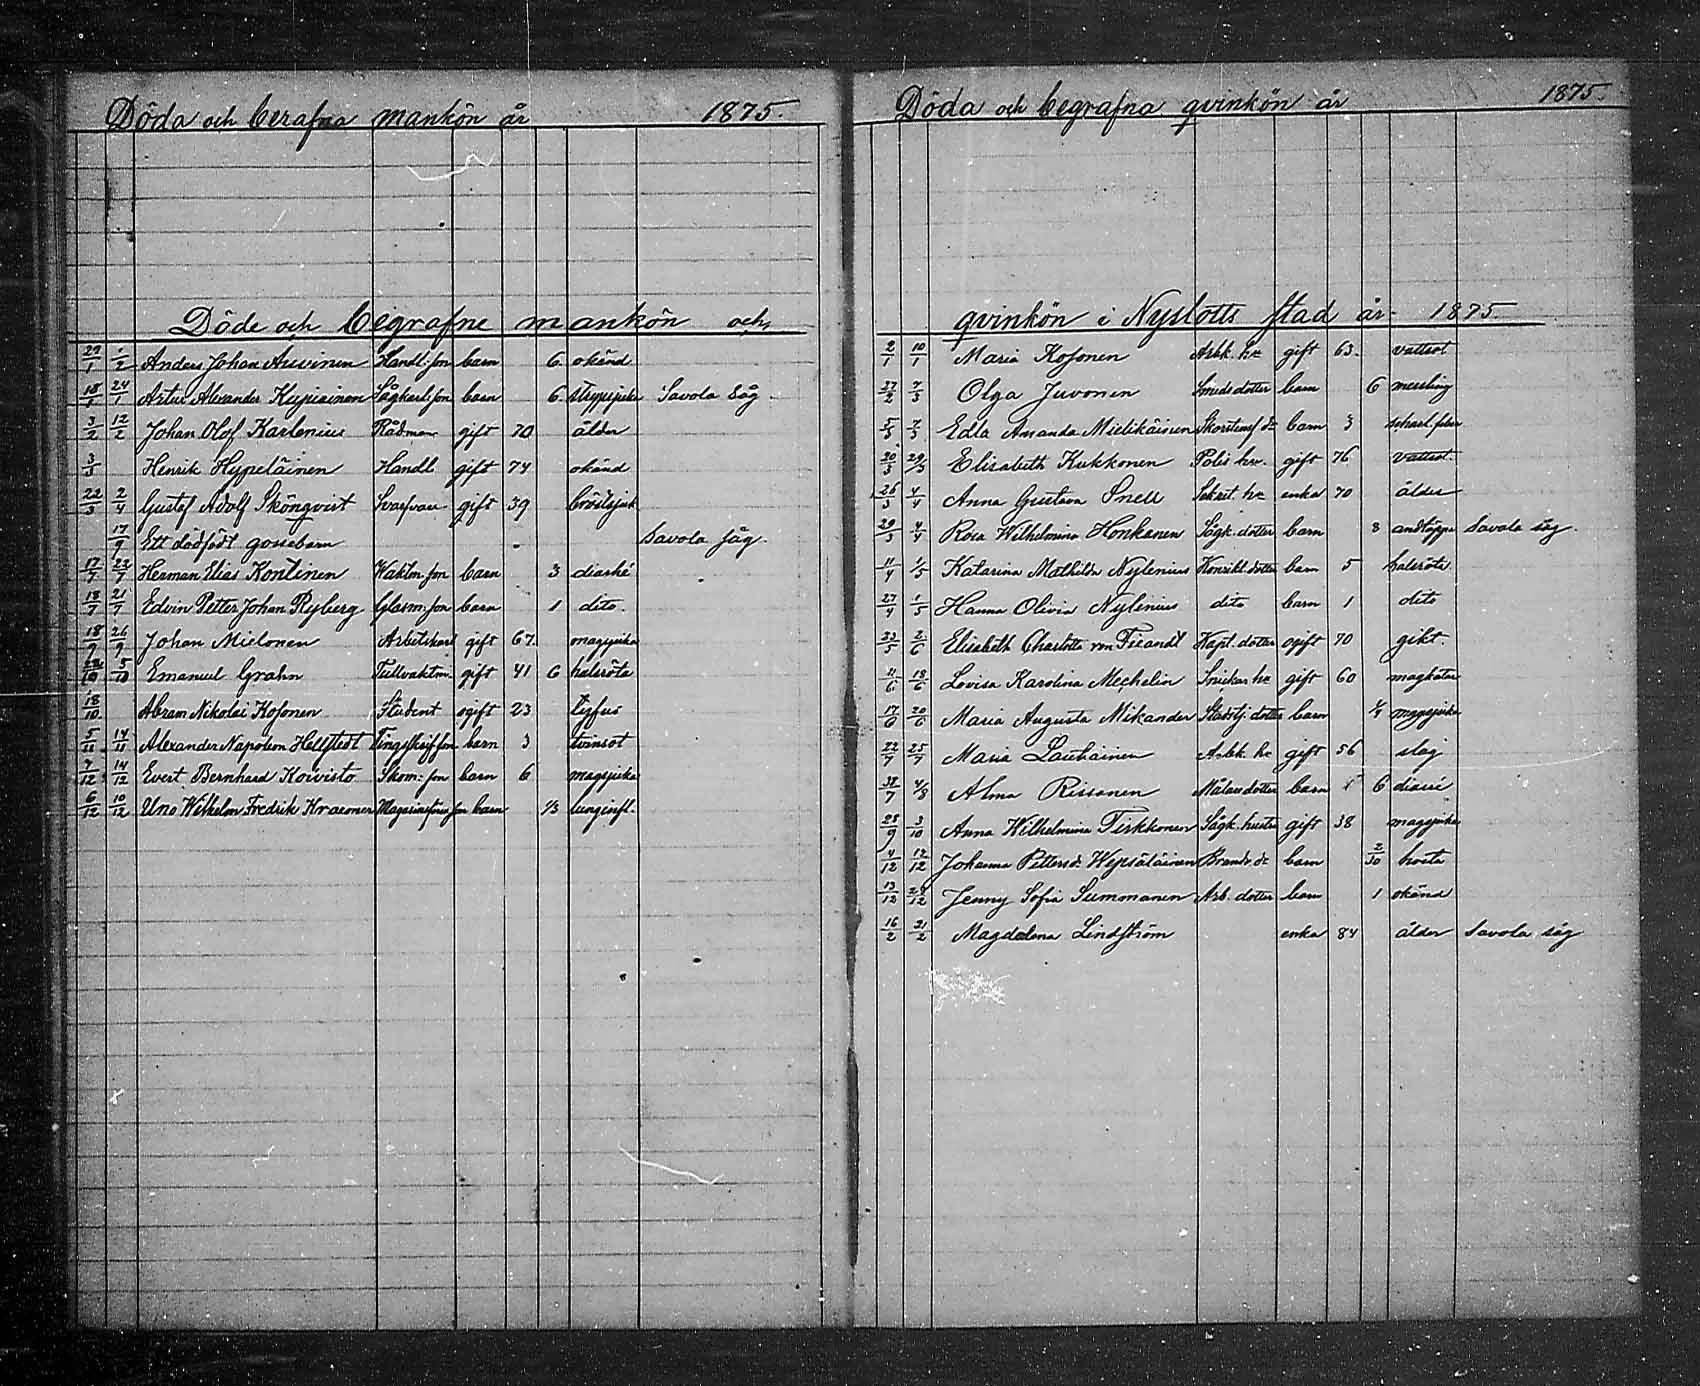 Döda och berafna mankön år 1875.
Döde och begrafne mankön och
29/1 1/2 Anders Johan Auvinen Handl. son barn 6. okänd
18/1 24/1 Artur Alexander Kupiainen Sågkarl. son barn 6. strypsjuka Savola Såg.
3/2 12/2 Johan Olof Karlenius Rådman gift 70 ålder
3/3 Henrik Hypeläinen Handl. gift 74 okänd
22/3 2/4 Gustaf Adolf Skönqvist Svarfvare gift 39 bröstsjuk
17/9 Ett dödfödt gossebarn Savola såg.
17/7 22/7 Herman Elias Kontinen Waktm. son barn 3 diarhé
18/7 21/7 Edvin Petter Johan Ryberg Glasm: son barn 1 dito.
18/9 26/9 Johan Mielonen Arbetskarl gift 67. magsjuka
5/10 Emanuel Grahn Tullvaktm. gift 41 6 halsröta
18/10. Abram Nikolai Kosonen Student ogift 23 tyfus
5/11 14/11 Alexander Napoleon Hellstedt son barn 3 tvinsot
7/12 14/12 Evert Bernhard Koivisto Skom: son barn 6 magsjuka
6/12 10/12 Uno Wilhelm Fredrik Kraemer son barn 1/3 lunginfl.
Döda och begrafna qvinkön år 1875.
qvinkön i Nyslotts stad år 1875.
2/1 10/1 Maria Kosonen Arbk. hu gift 63. vattsot
27/2 7/3 Olga Juvonen Smeds dotter barn 6 messling
5/3 7/3 Edla Amanda Mielikäinen Skorstensf dr barn 3 scharl. feber
20/3 29/3 Elisabeth Kukkonen Polis hu. gift 76 vattsot.
26/3 4/4 Anna Gustava Snell Sekret. hu enka 70 ålder
29/3 4/4 Rosa Wilhelmina Honkanen Sågk. dotter barn 8 andtäppa Savola såg.
11/4 1/5 Katarina Mathilda Nylenius dotter barn 5 halsröta
27/4 1/5 Hanna Olivia Nylenius dito barn 1 dito
23/5 2/6 Elisabeth Charlotta von Fieandt Kapt. dotter ogift 70 gikt.
11/6 18/6 Lovisa Karolina Mechelin Snickar hu gift 60 magkatar
17/6 20/6 Maria Augusta Mikander Stadstj. dotter barn magsjuka
22/7 25/7 Maria Lauhainen Arbk. hu gift 56 slag
4/8 Alma Rissanen Målare dotter barn 6 diarré
28/9 3/10 Anna Wilhelmina Tirkkonen Sågk. hustru gift 38 magsjuka
4/12 12/12 Johanna Pettersdr Wepsäläinen Brandv. dr barn 2/30 hosta
13/12 Jenny Sofia Summanen Arb. dotter barn 1 okänd
16/2 21/2 Magdalena Lindström enka 84 ålder Savola såg